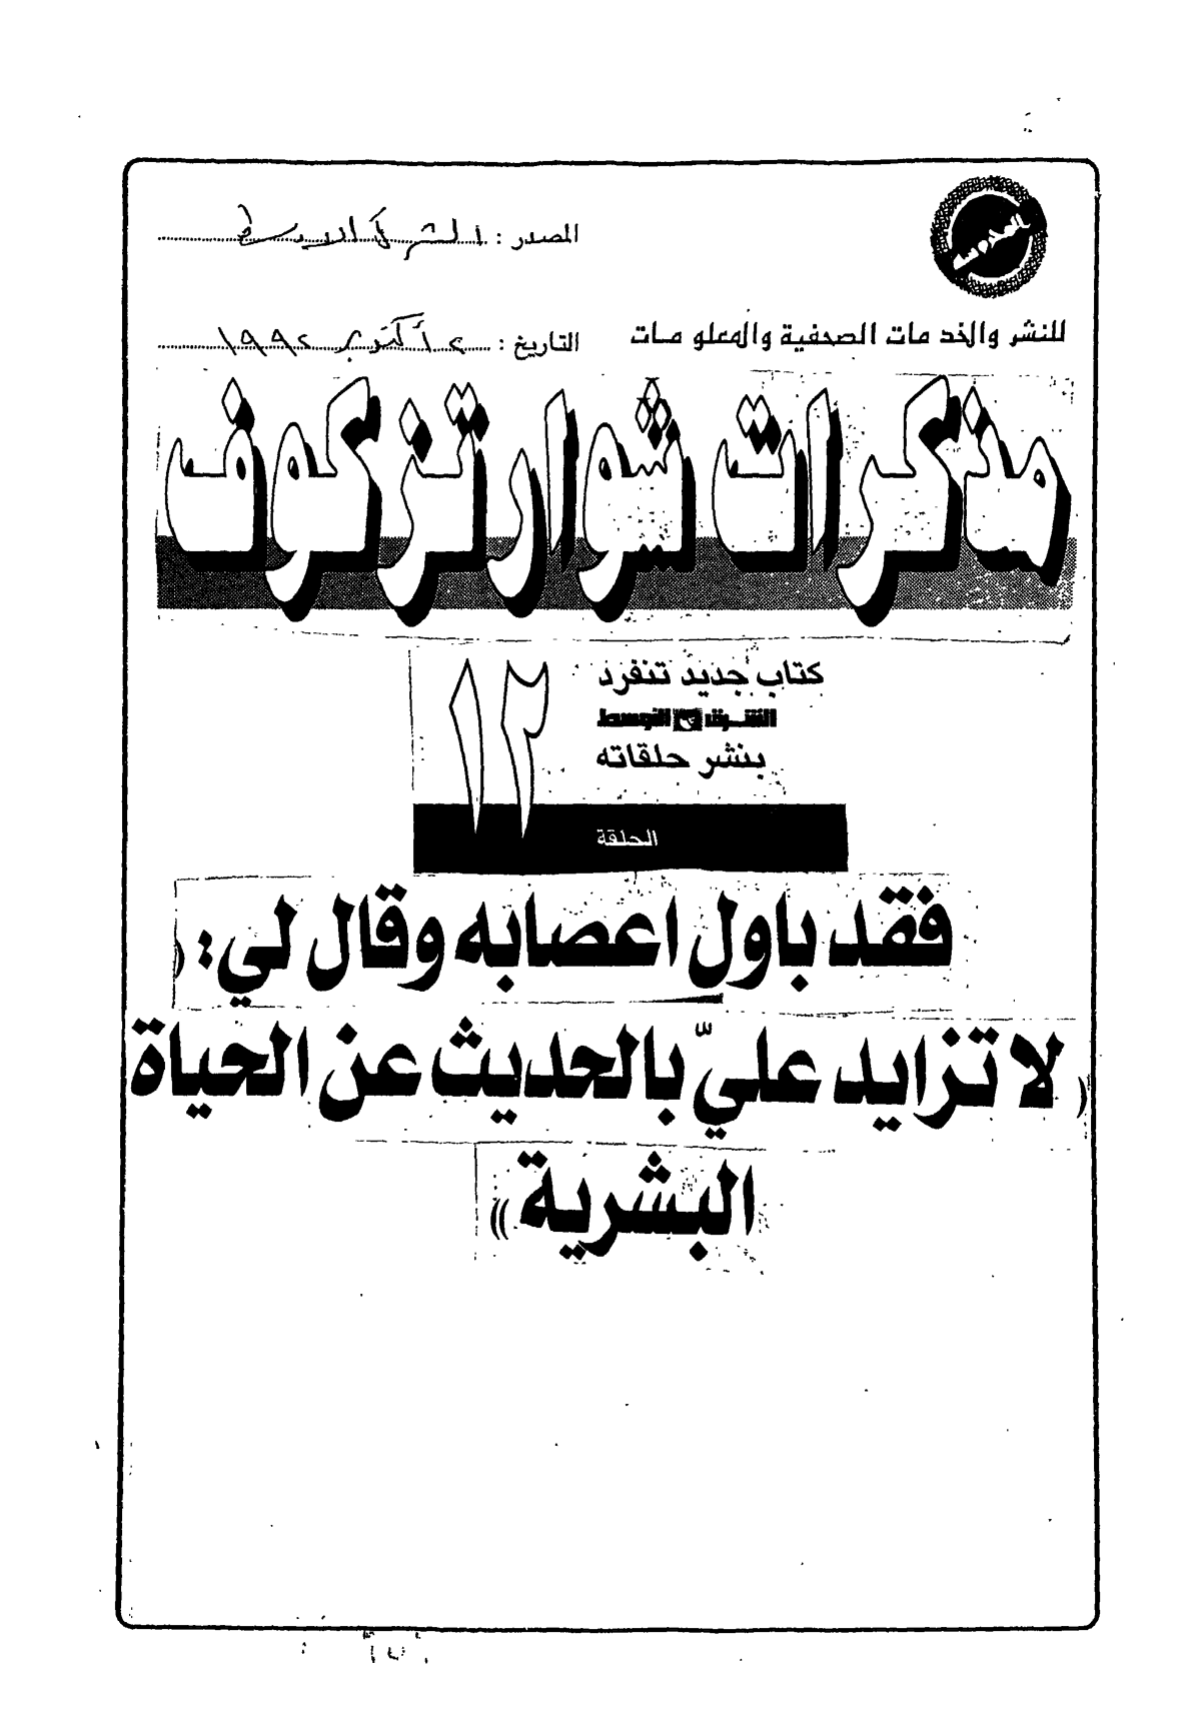 المصدر : الشرق الاوسط
للنشر والخدمات الصحفية والمعلومات
التاريخ : ٢ أكتوبر ١٩٩٢
مذكرات شوارتزكوف
كتاب جديد تنفرد
الشرق الأوسط
بنشر حلقاته
١٢
الحلقة
فقد باول اعصابه وقال لي: (
( لا تزايد عليّ بالحديث عن الحياة
البشرية ))